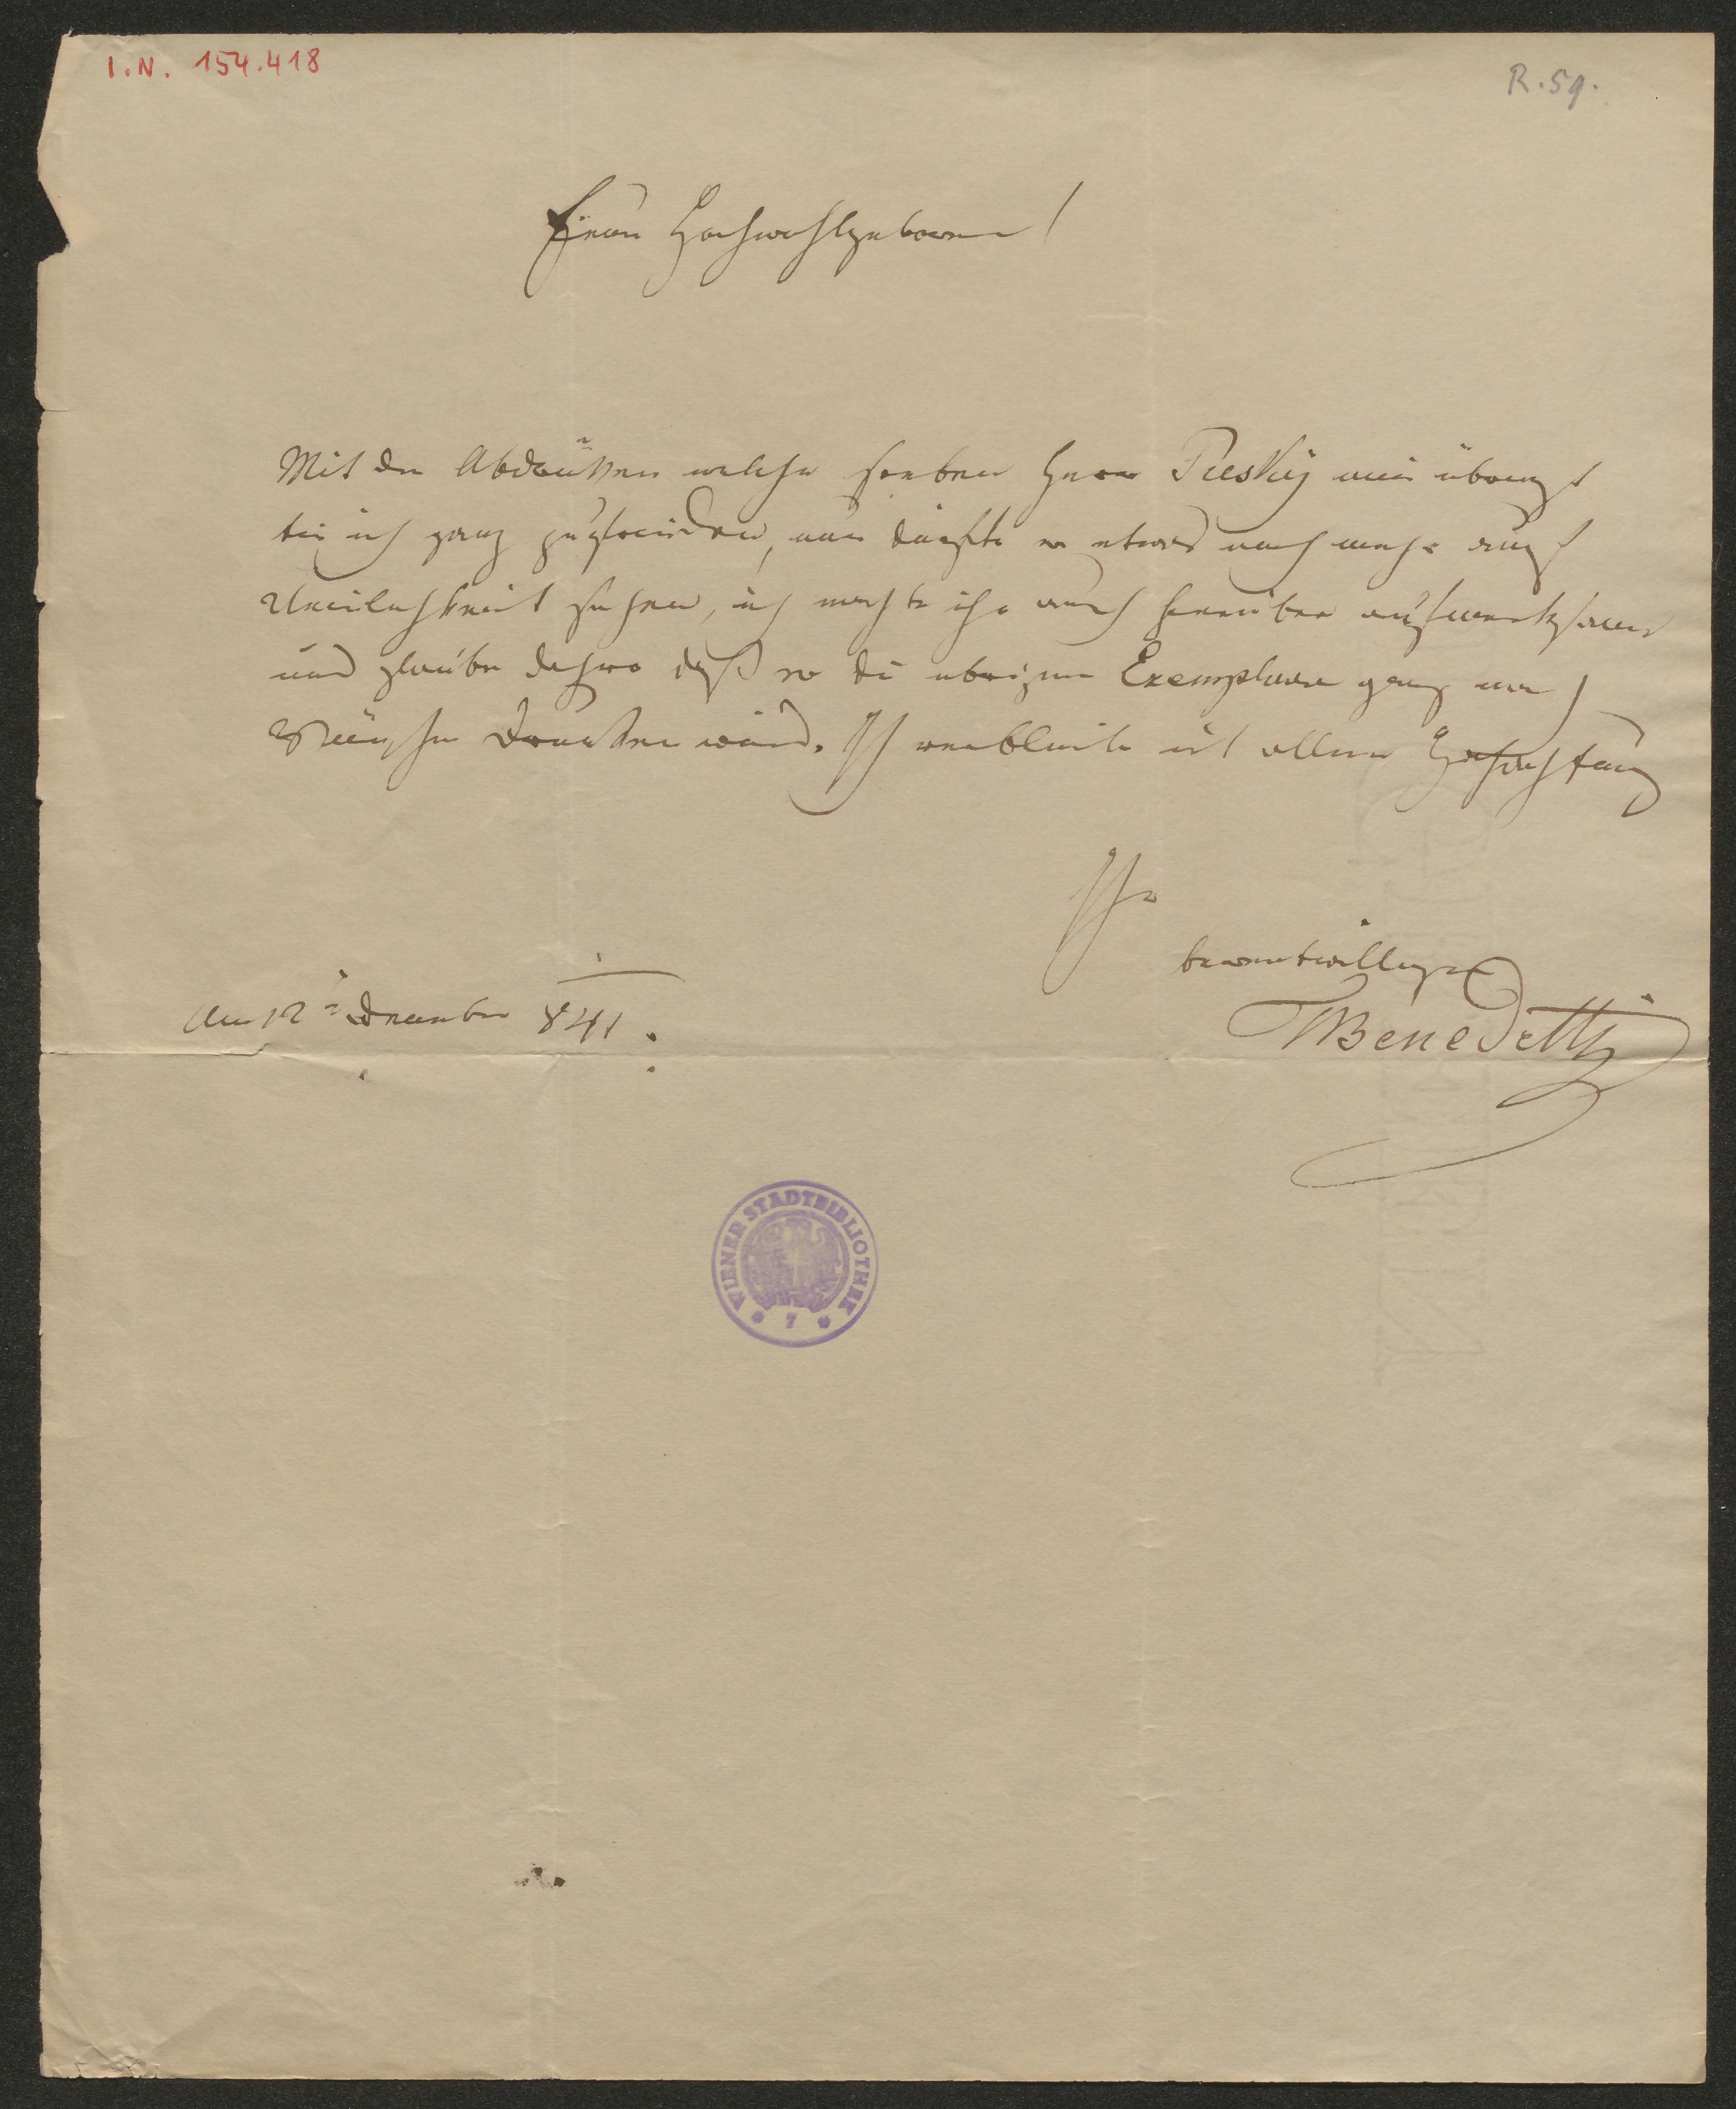 I.N. 154.418
R.59.
Euer Hochwohlgeboren!
Mit den Abdrücken welche soeben Herr Preskÿ mir überbringt
bin ich ganz zufrieden, nur dürfte er etwas noch mehr auf
Reinlichkeit sehen, ich machte ihn auch hierüber aufmerksam
und glaube daher daß er die übrigen Exemplare ganz nach
Wunsche drucken wird. Ich verbleibe mit aller Hochachtung
Ihr
bereitwilliger
TBenedetti
Am 12ten Dezember 841.
WIENER STADTBIBLIOTHEK
7